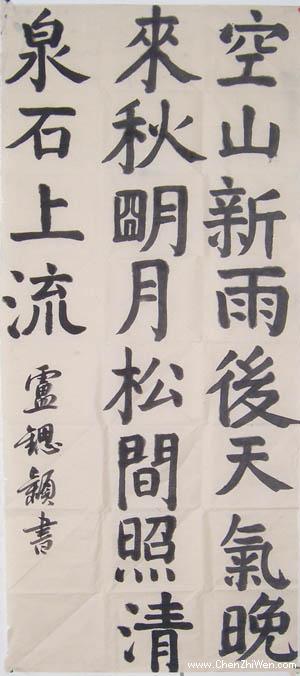 空山新雨後天氣晚
來秋朙月松間照清
泉石上流
盧鍶穎書
www.ChenZhiWen.com